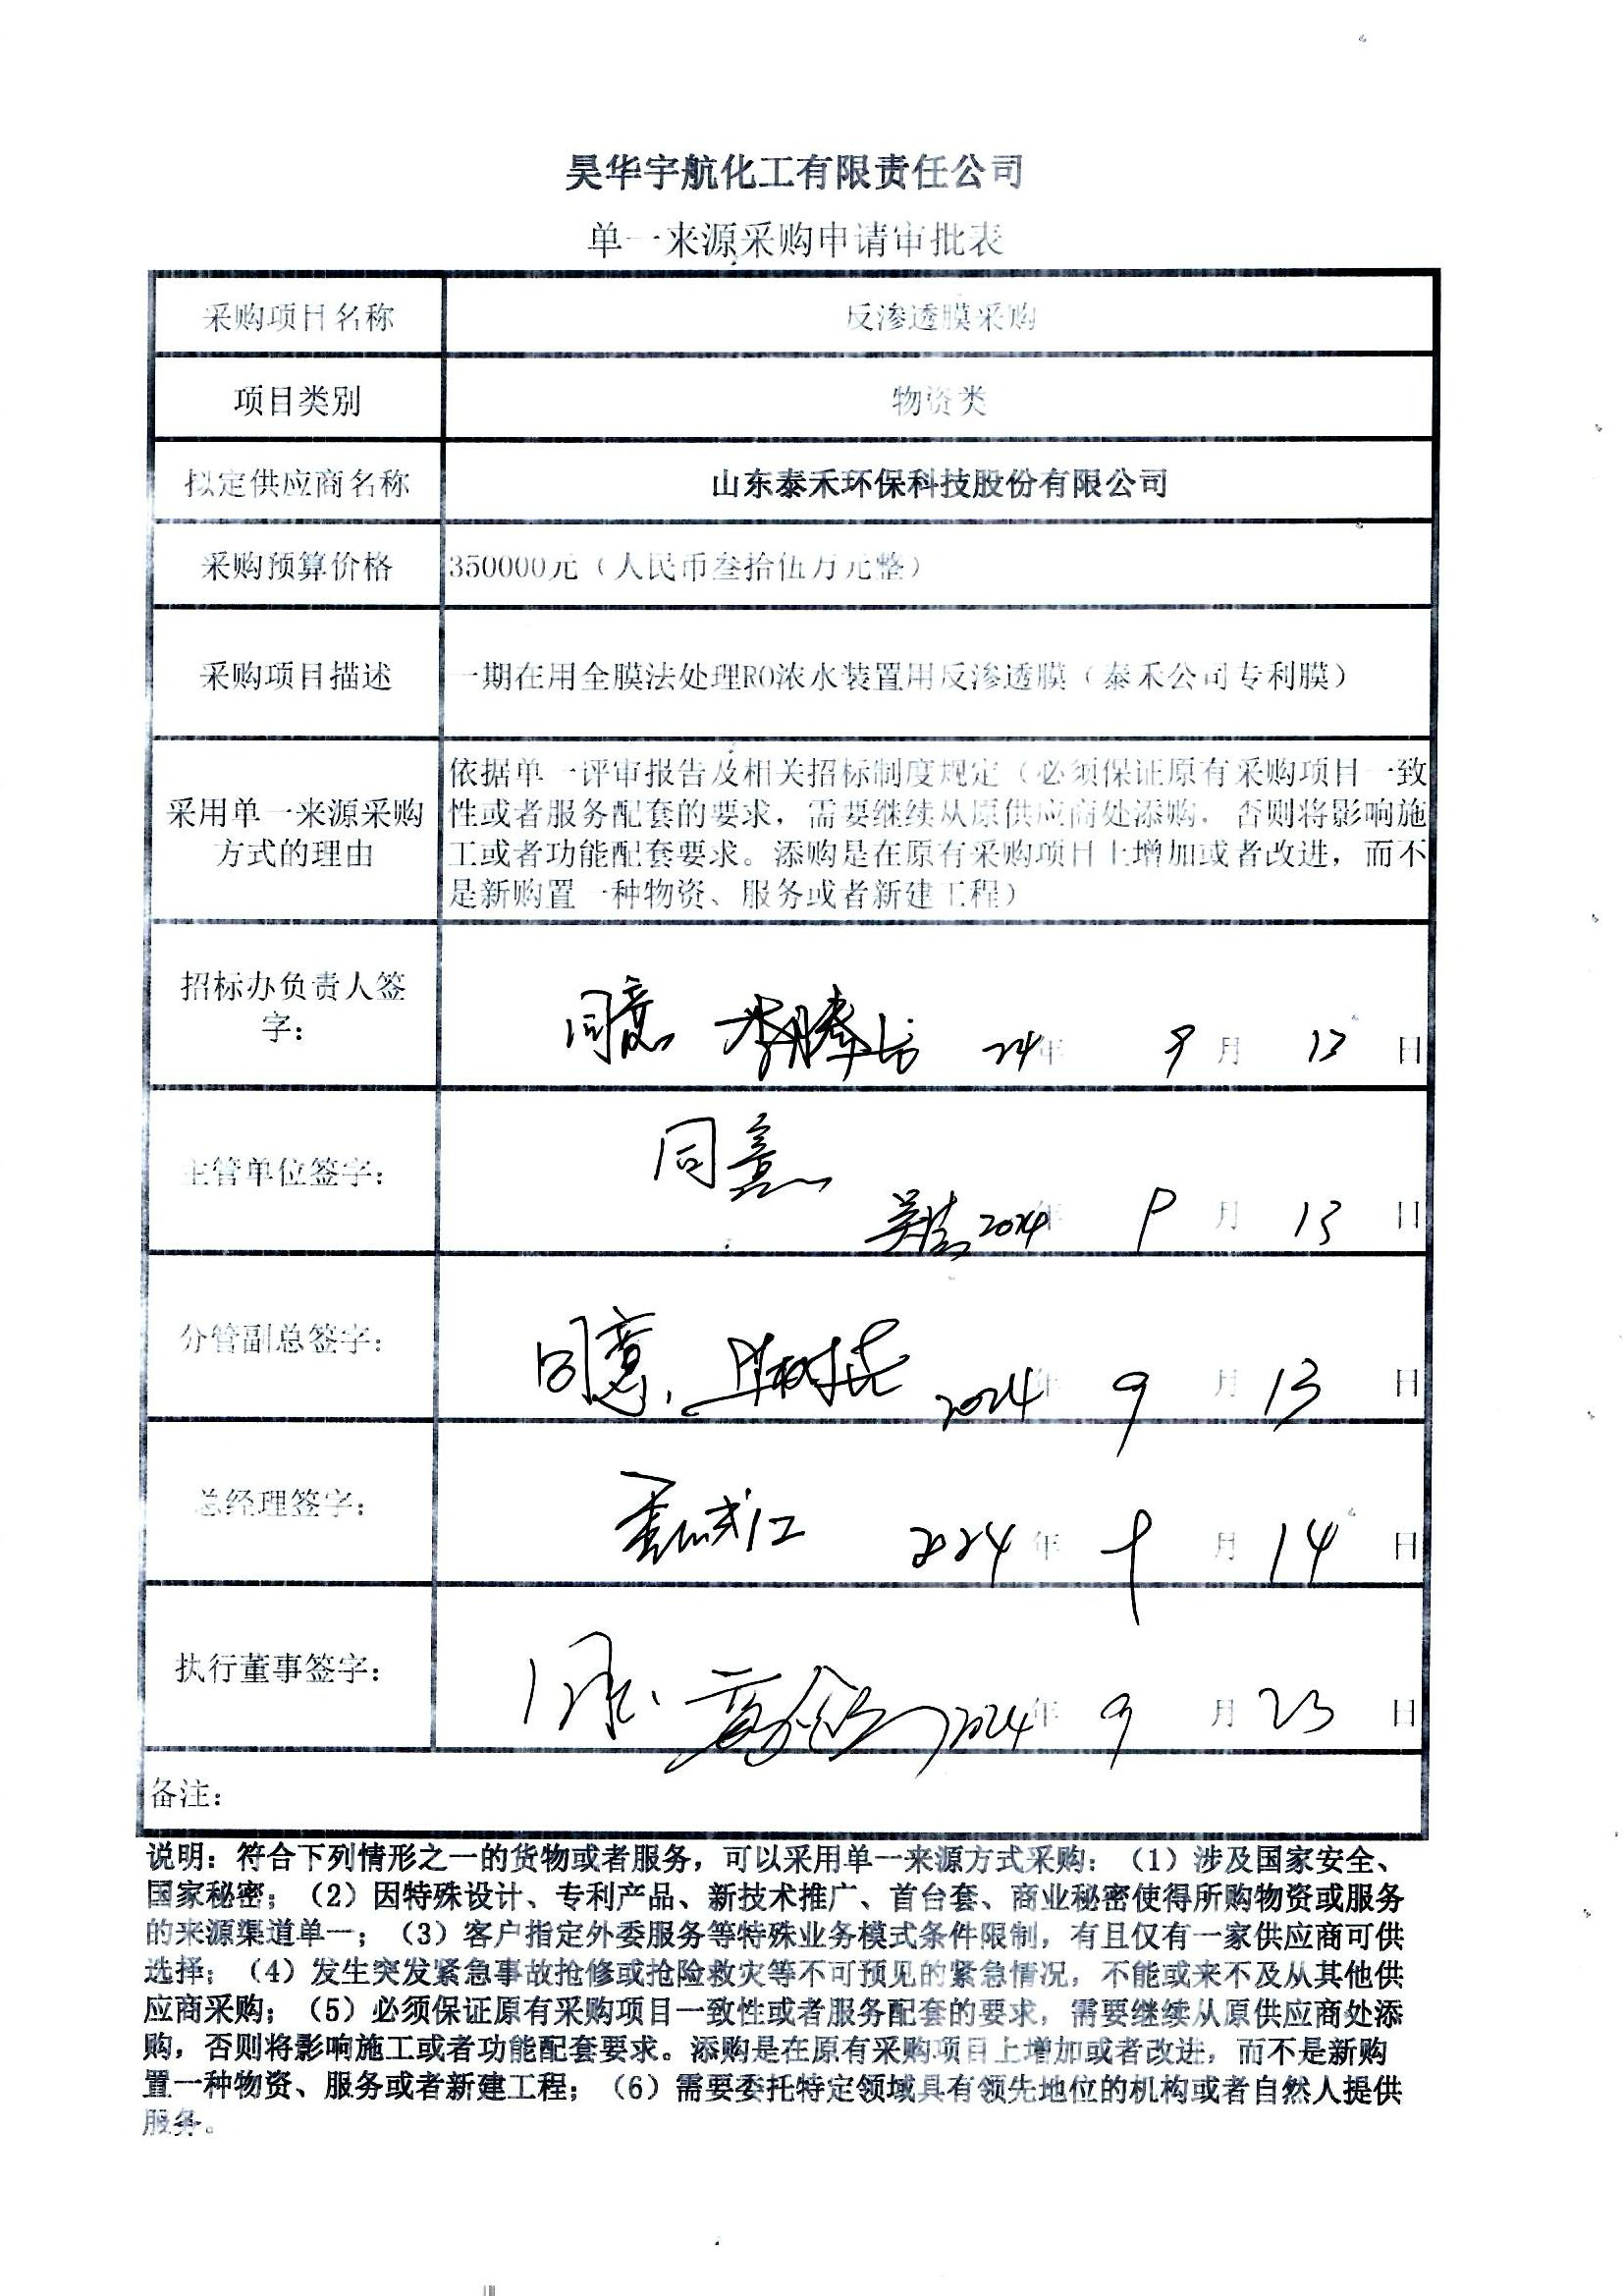 昊华宇航化工有限责任公司
单一来源采购申请审批表
采购项目名称 反渗透膜采购
项目类别 物资类
拟定供应商名称 山东泰禾环保科技股份有限公司
采购预算价格 350000元（人民币叁拾伍万元整）
采购项目描述 一期在用全膜法处理RO浓水装置用反渗透膜（泰禾公司专利膜）
采用单一来源采购
方式的理由
依据单一评审报告及相关招标制度规定（必须保证原有采购项目一致
性或者服务配套的要求，需要继续从原供应商处添购，否则将影响施
工或者功能配套要求。添购是在原有采购项目上增加或者改进，而不
是新购置一种物资、服务或者新建工程）
招标办负责人签
字：
同意 24年 9月 13日
主管单位签字：
同意
2024年 9月 13日
分管副总签字：
同意， 2024年 9月 13日
总经理签字：
2024年 9月 14日
执行董事签字：
2024年 9月 23日
备注：
说明：符合下列情形之一的货物或者服务，可以采用单一来源方式采购：（1）涉及国家安全、
国家秘密；（2）因特殊设计、专利产品、新技术推广、首台套、商业秘密使得所购物资或服务
的来源渠道单一；（3）客户指定外委服务等特殊业务模式条件限制，有且仅有一家供应商可供
选择；（4）发生突发紧急事故抢修或抢险救灾等不可预见的紧急情况，不能或来不及从其他供
应商采购；（5）必须保证原有采购项目一致性或者服务配套的要求，需要继续从原供应商处添
购，否则将影响施工或者功能配套要求。添购是在原有采购项目上增加或者改进，而不是新购
置一种物资、服务或者新建工程；（6）需要委托特定领域具有领先地位的机构或者自然人提供
服务。